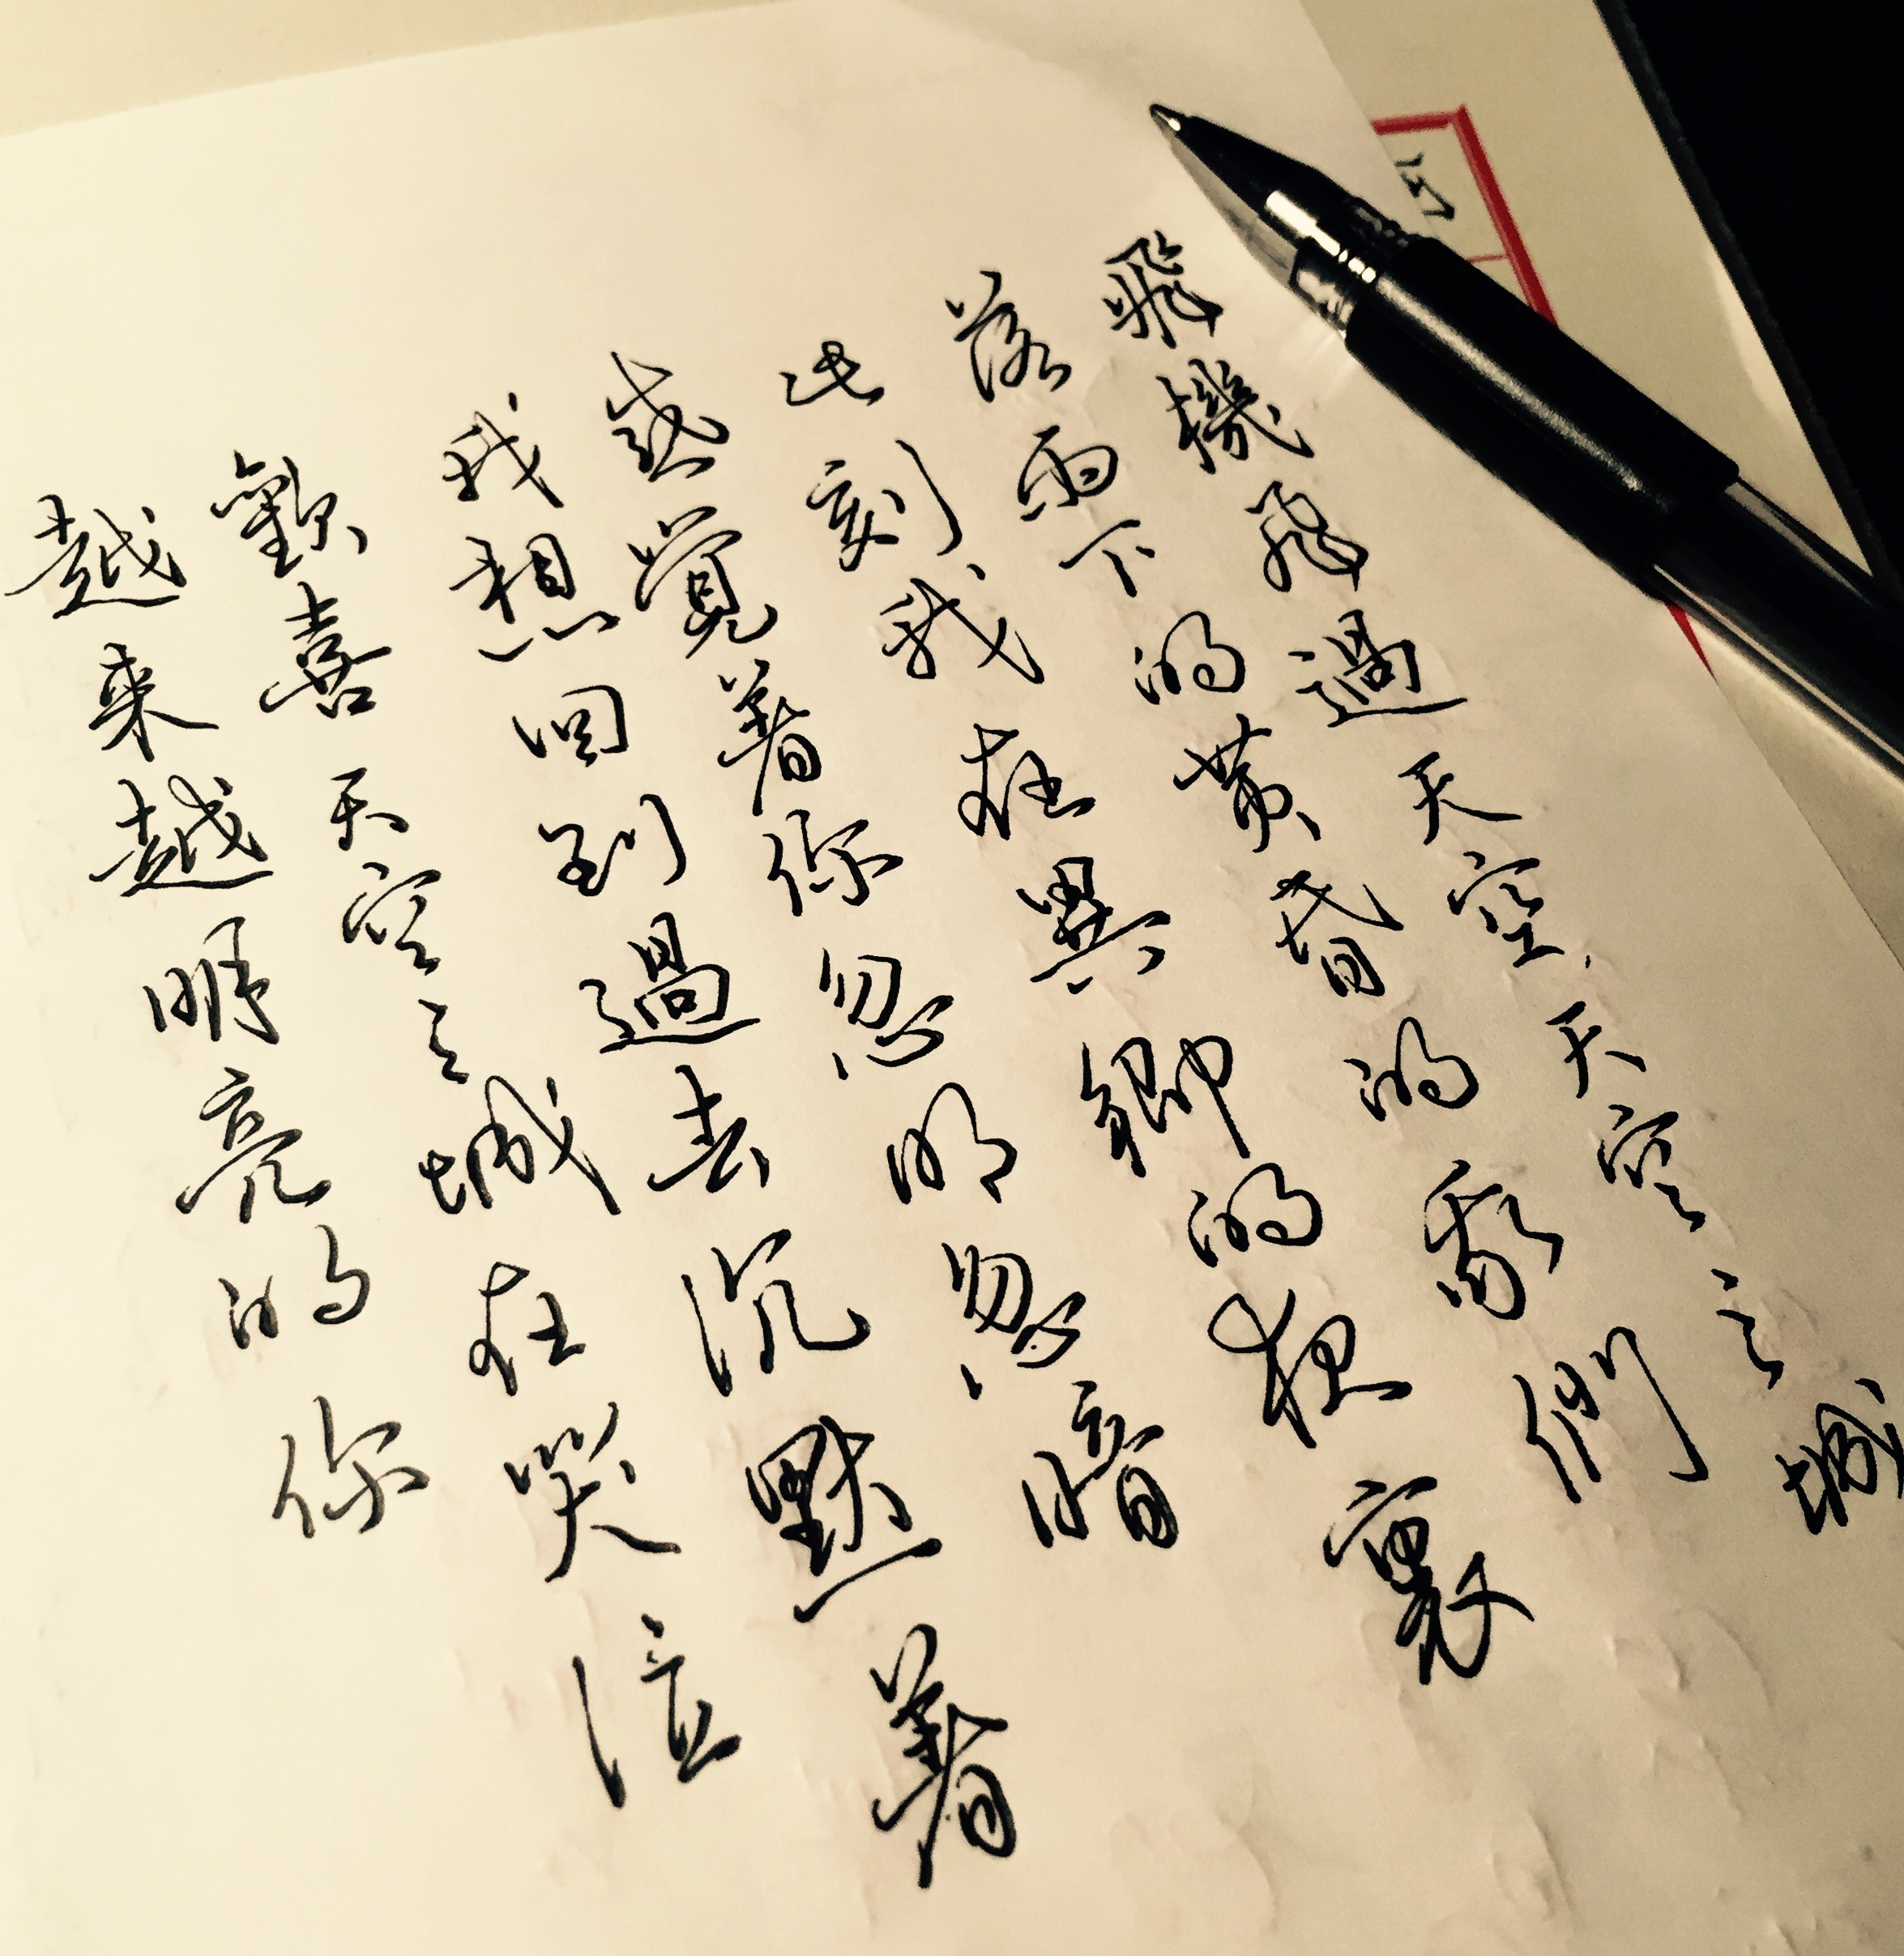 飛機飛過天空天空之城
落雨下的黄昏的我們
此刻我在異鄉的夜裏
感覺着你忽明忽暗
我想回到過去沉默着
歡喜天空之城在哭泣
越来越明亮的你